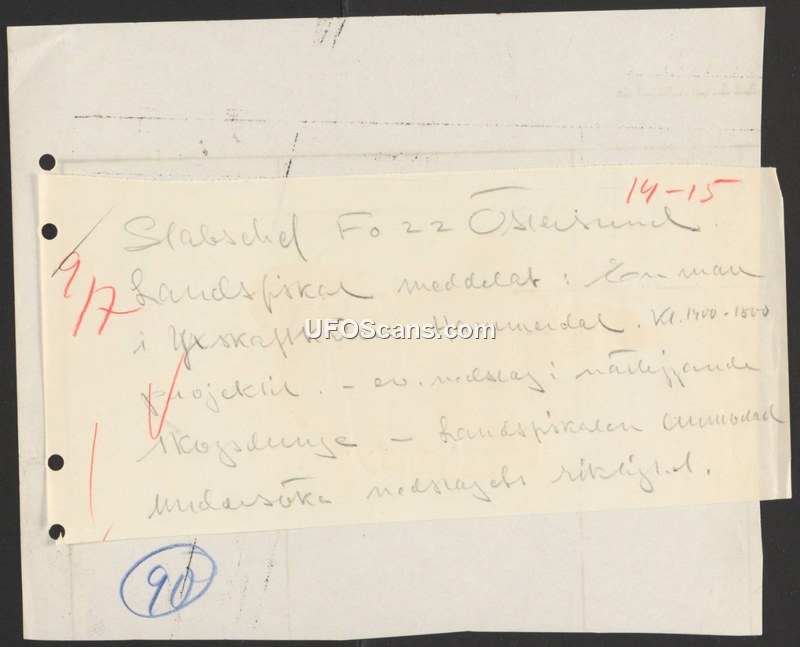 14-15
Stabschef Fo 22 Östersund.
9/7
Landsfiskal meddelat: En man
i Hammerdal. Kl. 1400-1500
UFOScans.com
projektil. - ev. nedslag i närliggande
skogsdunge - Landsfiskalen anmodad
undersöka nedslagets riktighet.
90